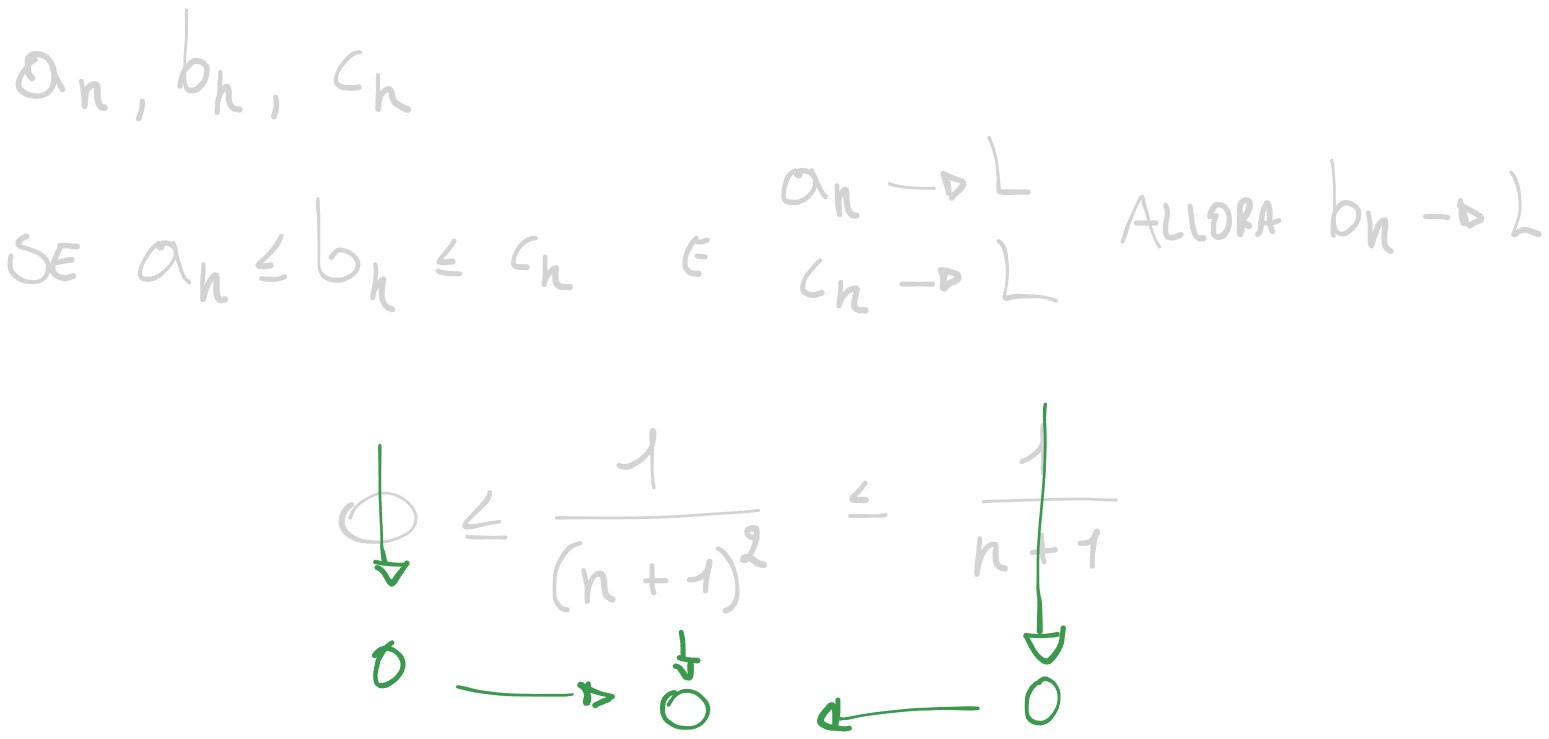 aₙ, bₙ, cₙ
SE aₙ ≤ bₙ ≤ cₙ E aₙ → L cₙ → L ALLORA bₙ → L
0 ≤ 1/(n+1)² ≤ 1/(n+1)
0 → 0 ← 0